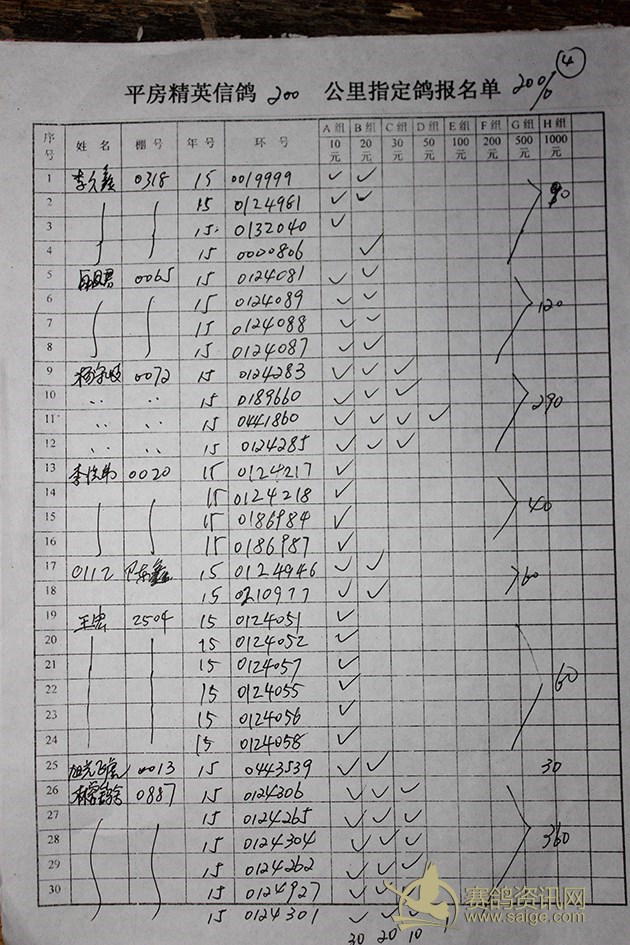 4
平房精英信鸽 200 公里指定鸽报名单 200%
序号 姓名 棚号 年号 环号 A组10元 B组20元 C组30元 D组50元 E组100元 F组200元 G组500元 H组1000元
1 0318 15 0019999 ✓ ✓
2 15 0124961 ✓ ✓ 90
3 15 0132040 ✓
4 15 0000806 ✓
5 0065 15 0124081 ✓ ✓
6 15 0124089 ✓ ✓ 120
7 15 0124088 ✓ ✓
8 15 0124087 ✓ ✓
9 0072 15 0124283 ✓ ✓ ✓
10 〃 〃 15 0189660 ✓ ✓ ✓ 290
11 〃 〃 15 0441860 ✓ ✓ ✓ ✓
12 〃 〃 15 0124285 ✓ ✓ ✓
13 0020 15 0124217 ✓
14 15 0124218 ✓ 40
15 15 0186984 ✓
16 15 0186987 ✓
17 0112 陈鑫 15 0124946 ✓ ✓ 60
18 15 0210977 ✓ ✓
19 王忠 2504 15 0124051 ✓
20 15 0124052 ✓
21 15 0124057 ✓ 60
22 15 0124055 ✓
23 15 0124056 ✓
24 15 0124058 ✓
25 0013 15 0443539 ✓ ✓ 30
26 0887 15 0124306 ✓ ✓ ✓
27 15 0124265 ✓ ✓ ✓
28 15 0124304 ✓ ✓ ✓ 360
29 15 0124262 ✓ ✓ ✓
30 15 0124927 ✓ ✓
15 0124301 ✓ ✓
30 20 10
赛鸽资讯网
www.saige.com